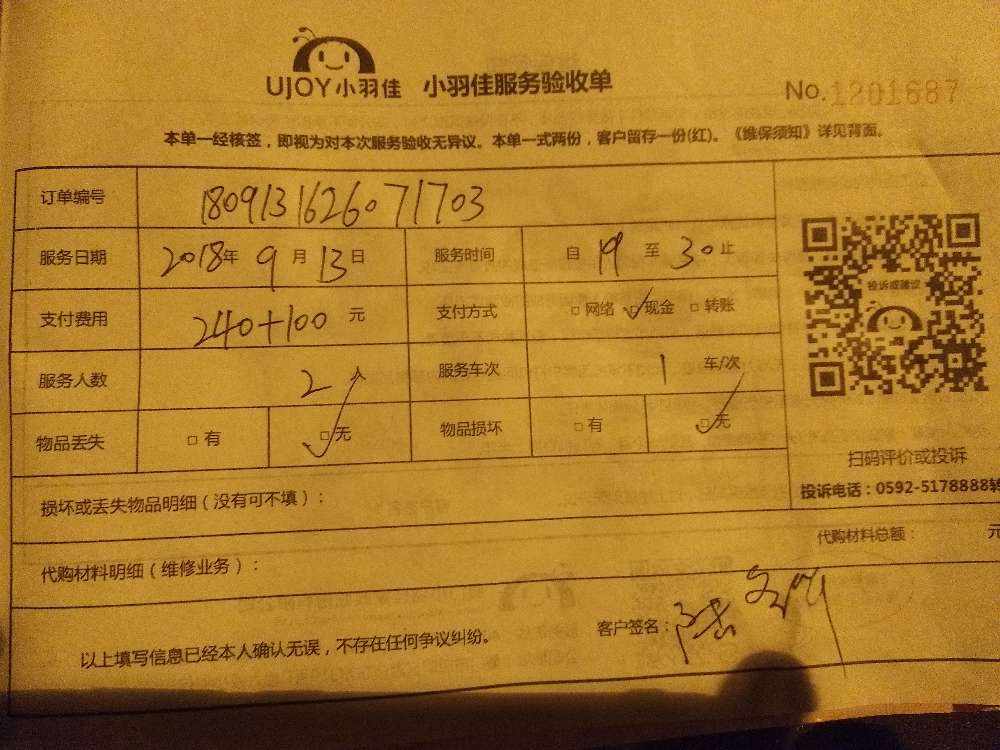 UJOY小羽佳 小羽佳服务验收单 No.1201687
本单一经核签，即视为对本次服务验收无异议。本单一式两份，客户留存一份(红)。《维保须知》详见背面。
订单编号 180913162607 1703
服务日期 2018年 9月 13日 服务时间 自 19 至 30 止
支付费用 240+100 元 支付方式 □网络 □✓现金 □转账
服务人数 2 人 服务车次 1 车/次
物品丢失 □有 □✓无 物品损坏 □有 □✓无
投诉或建议
扫码评价或投诉
投诉电话：0592-5178888转
损坏或丢失物品明细（没有可不填）：
代购材料明细（维修业务）： 代购材料总额： 元
以上填写信息已经本人确认无误，不存在任何争议纠纷。 客户签名：